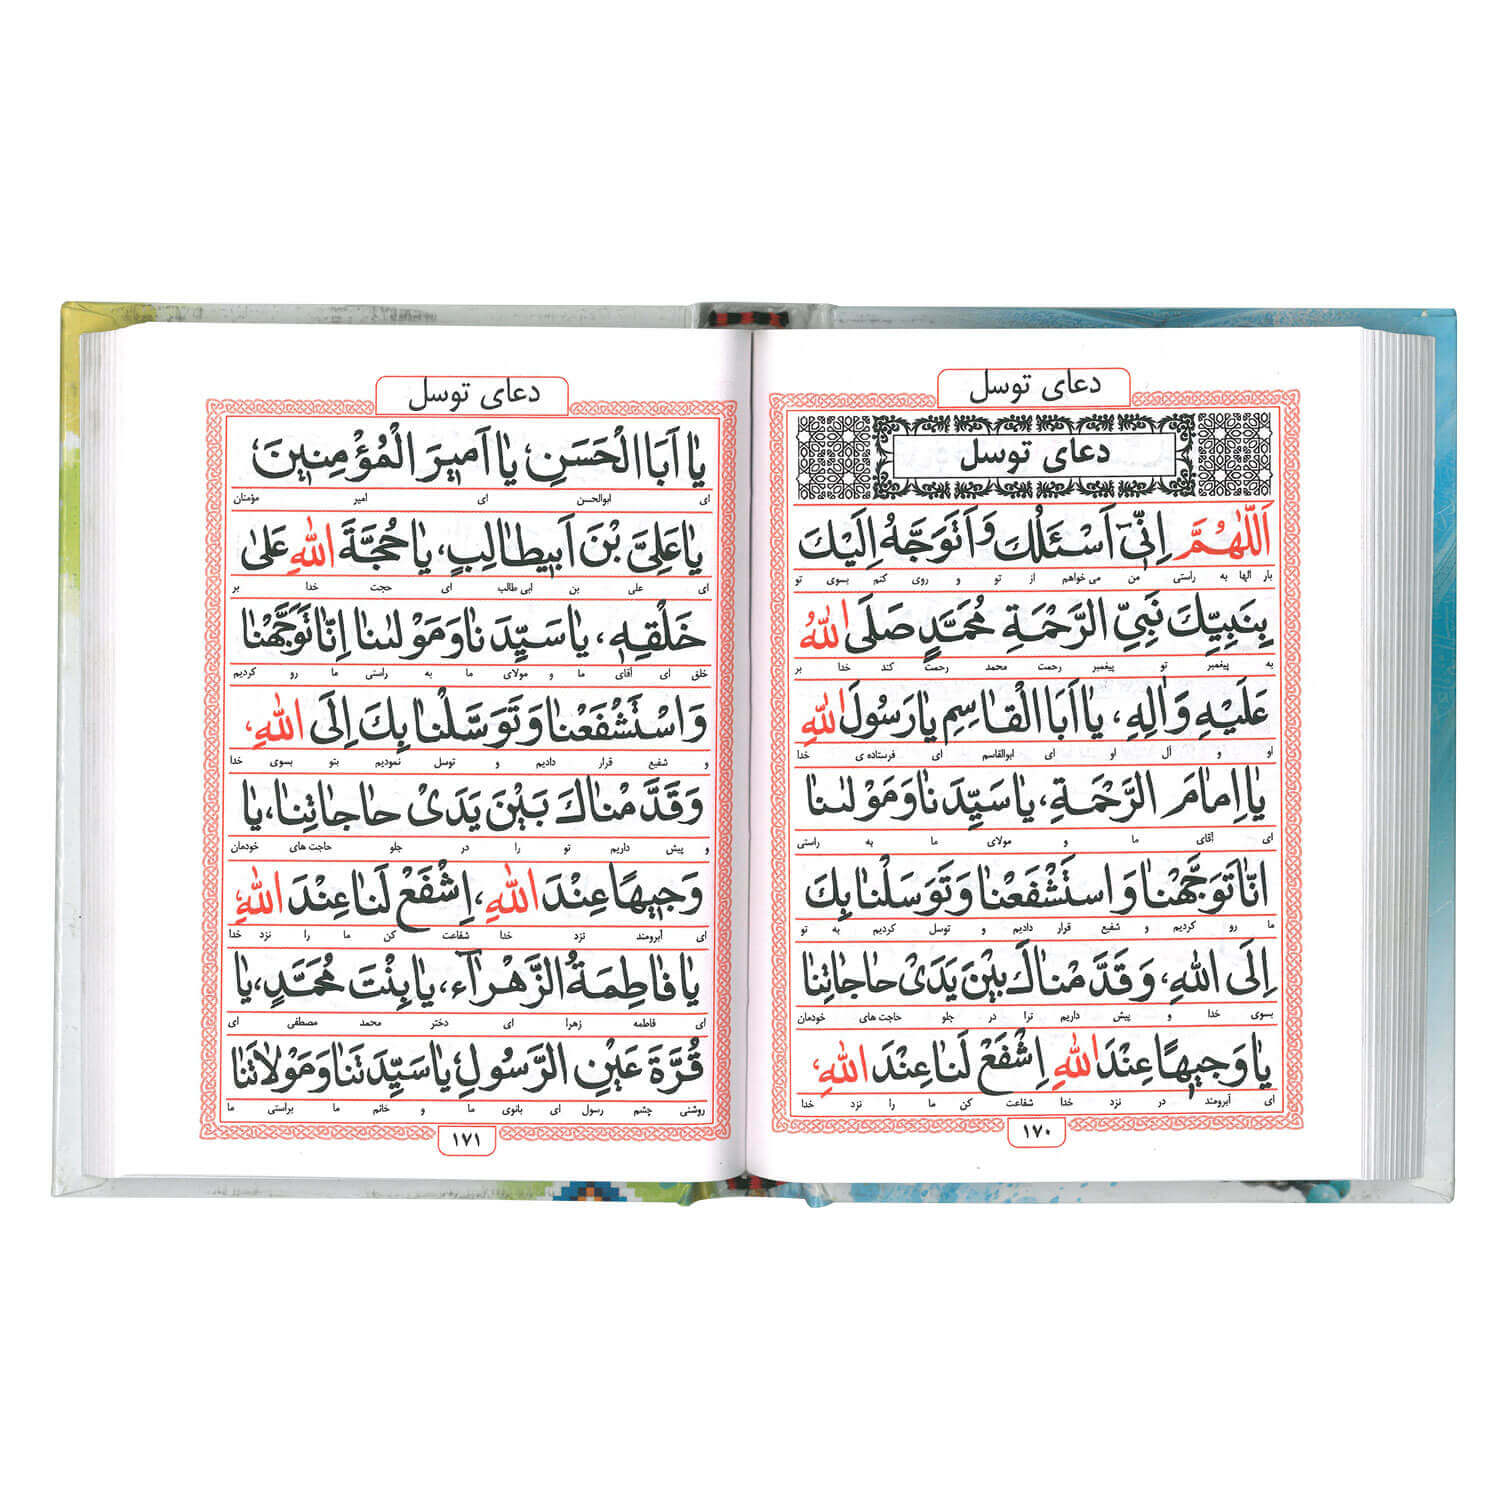 دعای توسل
دعای توسل
اَللّٰهُمَّ اِنّیٓ اَسْئَلُكَ وَاَتَوَجَّهُ اِلَیْكَ
بار الها به راستی من می خواهم از تو و روی کنم بسوی تو
بِنَبِیِّكَ نَبِیِّ الرَّحْمَةِ مُحَمَّدٍ صَلَی اللهُ
به پیغمبر تو پیغمبر رحمت محمد رحمت کند خدا بر
عَلَیْهِ وَاٰلِهِ، یٰا اَبَا الْقٰاسِمِ یٰا رَسُولَ اللهِ
او و آل او ای ابوالقاسم ای فرستاده ی خدا
یٰا اِمٰامَ الرَّحْمَةِ، یٰا سَیِّدَنٰا وَمَوْلٰىنٰا
ای آقای ما و مولای ما به راستی
اِنّٰا تَوَجَّهْنٰا وَاسْتَشْفَعْنٰا وَتَوَسَلْنٰا بِكَ
ما رو کردیم و شفیع قرار دادیم و توسل کردیم به تو
اِلَی اللهِ، وَقَدَّمْنٰاكَ بَیْنَ یَدَیْ حٰاجٰاتِنٰا
بسوی خدا و پیش داریم ترا در جلو حاجت های خودمان
یٰا وَجیهًا عِنْدَ اللهِ اِشْفَعْ لَنٰا عِنْدَ اللهِ،
ای آبرومند در نزد خدا شفاعت کن ما را نزد خدا
۱۷۰
دعای توسل
یٰا اَبَا الْحَسَنِ، یٰا اَمیرَ الْمُؤْمِنینَ،
ای ابوالحسن ای امیر مؤمنان
یٰا عَلِیَّ بْنَ اَبیطٰالِبٍ، یٰا حُجَّةَ اللهِ عَلیٰ
ای علی بن ابی طالب ای حجت خدا بر
خَلْقِهِ، یٰا سَیِّدَنٰا وَمَوْلٰىنٰا اِنّٰا تَوَجَّهْنٰا
خلق ای آقای ما و مولای ما به راستی ما رو کردیم
وَاسْتَشْفَعْنٰا وَتَوَسَّلْنٰا بِكَ اِلَی اللهِ،
و شفیع قرار دادیم و توسل نمودیم بتو بسوی خدا
وَقَدَّمْنٰاكَ بَیْنَ یَدَیْ حٰاجٰاتِنٰا، یٰا
و پیش داریم تو را در جلو حاجت های خودمان
وَجیهًا عِنْدَ اللهِ، اِشْفَعْ لَنٰا عِنْدَ اللهِ،
ای آبرومند نزد خدا شفاعت کن ما را نزد خدا
یٰا فٰاطِمَةُ الزَّهْرٰآءِ، یٰا بِنْتَ مُحَمَّدٍ، یٰا
ای فاطمه زهرا ای دختر محمد مصطفی ای
قُرَّةَ عَیْنِ الرَّسُولِ، یٰا سَیِّدَتَنٰا وَمَوْلاٰتَنٰا
روشنی چشم رسول ای بانوی ما و خانم ما براستی ما
۱۷۱